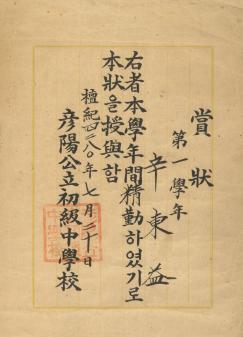 賞狀
第一學年
辛東益
右者本學年間精勤하였기로
本狀을授與함
檀紀四二八〇年七月二十日
彦陽公立初級中學校